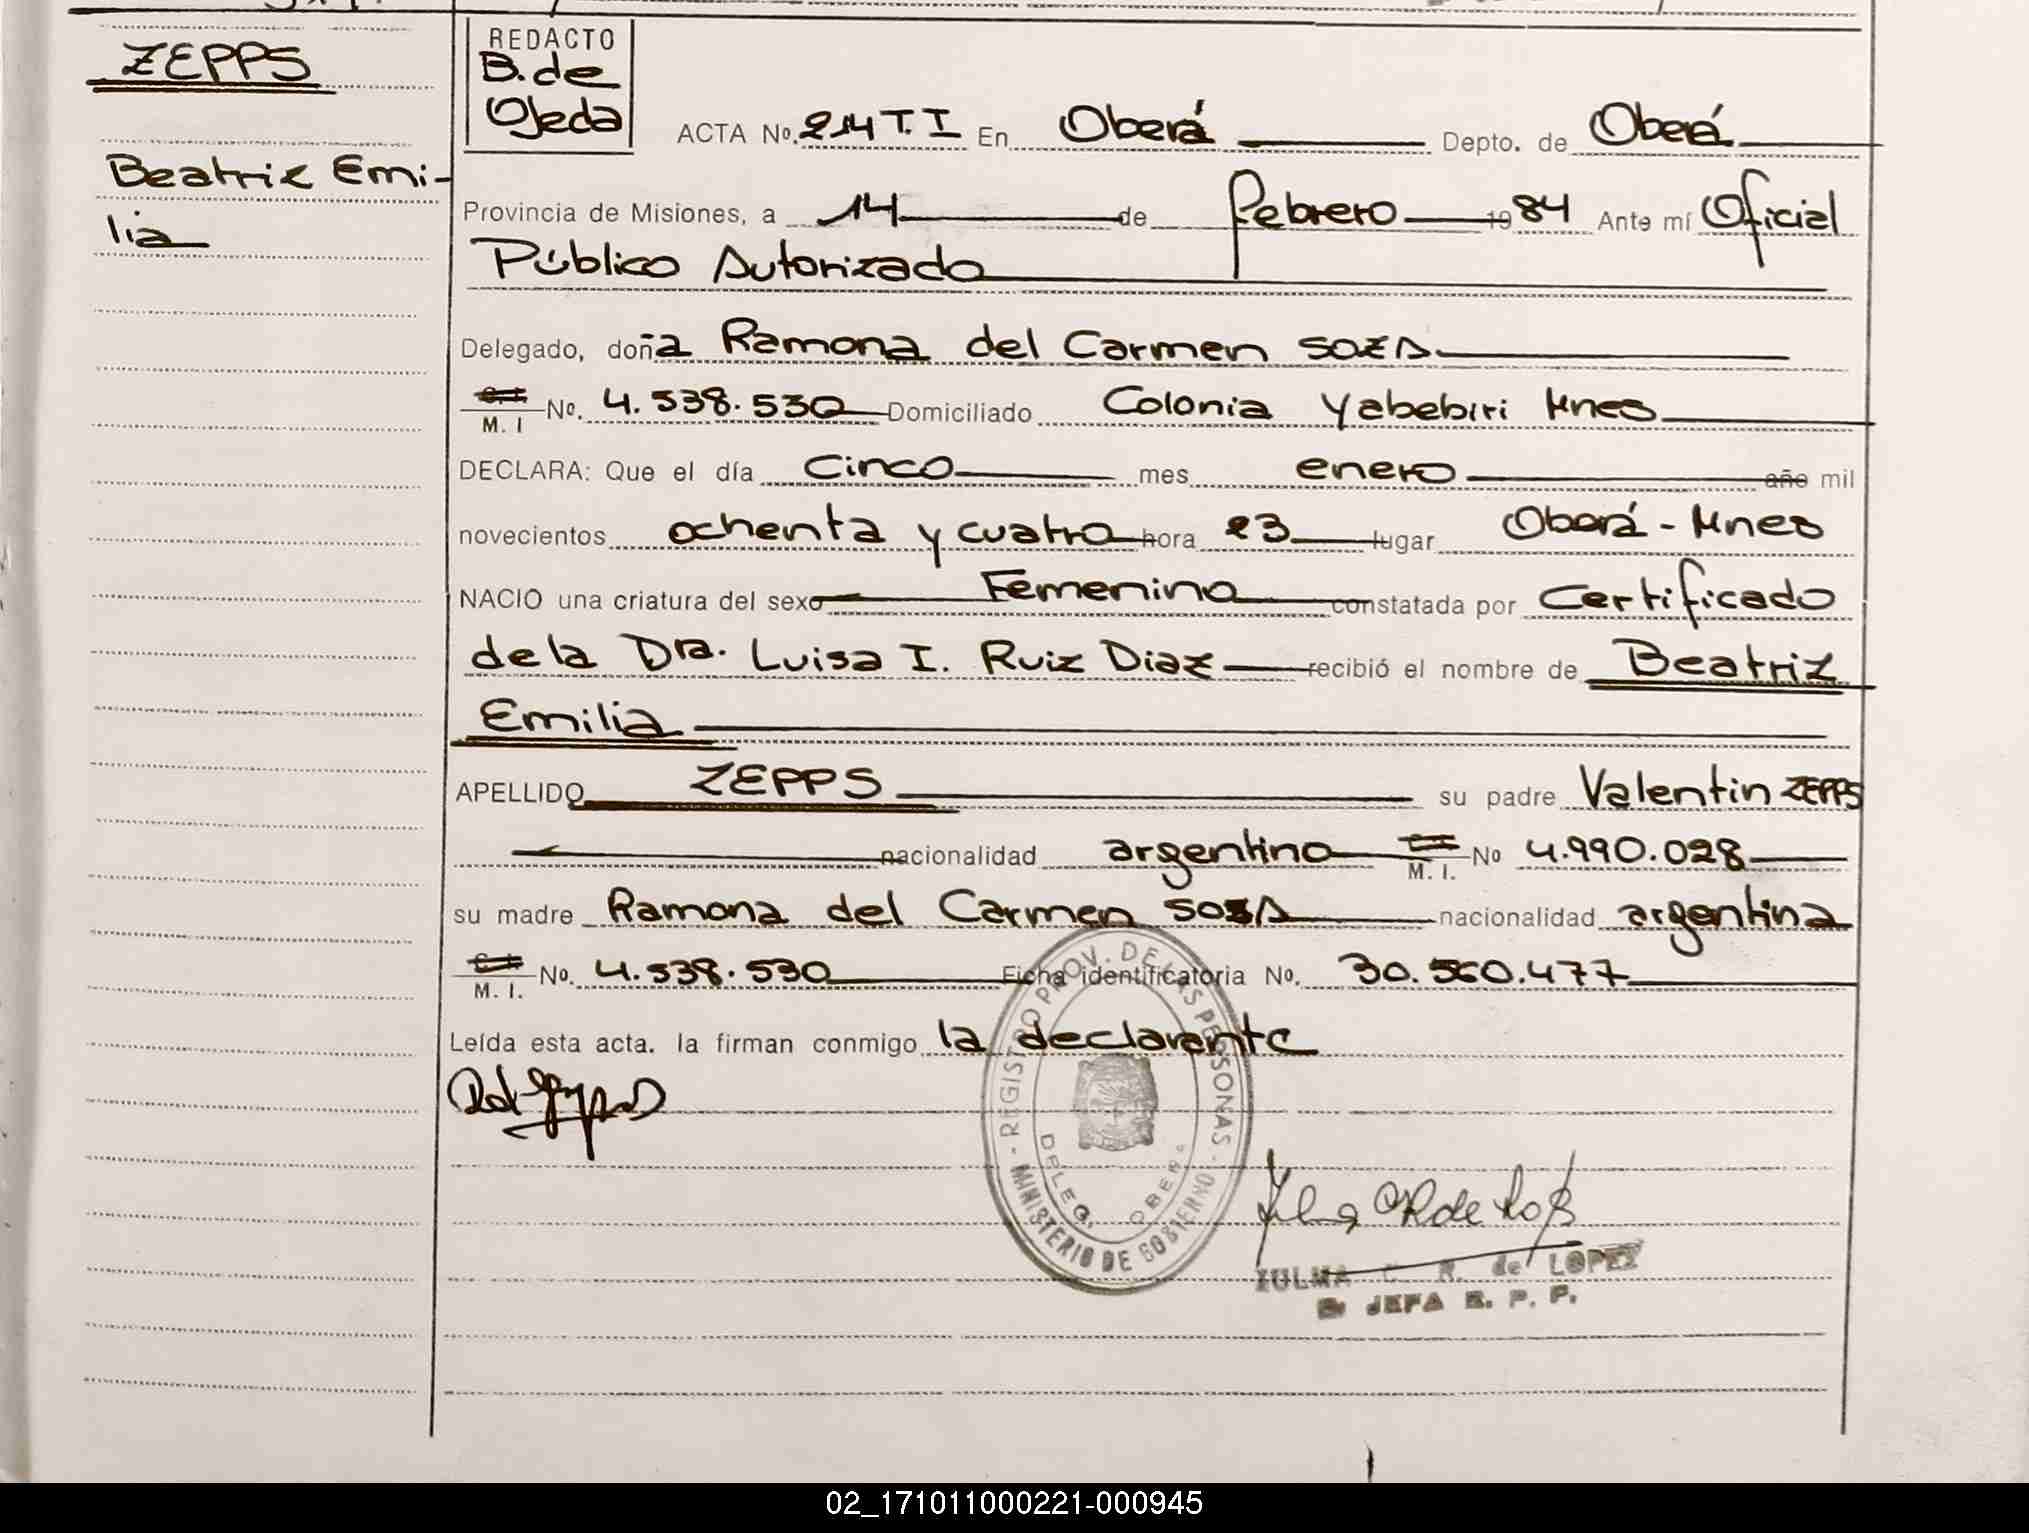 ZEPPS
Beatriz Emi-
lia
REDACTO
B. de
Ojeda
ACTA No. 214 T. I En Oberá Depto. de Oberá
Provincia de Misiones, a 14 de febrero 1984 Ante mí Oficial
Público Autorizado
Delegado, doña Ramona del Carmen SOZA
M. I No. 4.538.530 Domiciliado Colonia Yabebiri Mnes
DECLARA: Que el día cinco mes enero año mil
novecientos ochenta y cuatro hora 23 lugar Oberá - Mnes
NACIO una criatura del sexo Femenino constatada por Certificado
de la Dra. Luisa I. Ruiz Diaz recibió el nombre de Beatriz
Emilia
APELLIDO ZEPPS su padre Valentin ZEPPS
nacionalidad argentino M. I. No 4.990.028
su madre Ramona del Carmen SOSA nacionalidad argentina
M. I. No. 4.538.530 Ficha identificatoria No. 30.560.477
Leída esta acta. la firman conmigo la declarante
REGISTRO PROV. DE LAS PERSONAS
DELEG. OBERA
MINISTERIO DE GOBIERNO
ZULMA C. R. de LOPEZ
JEFA R. P. P.
02_171011000221-000945